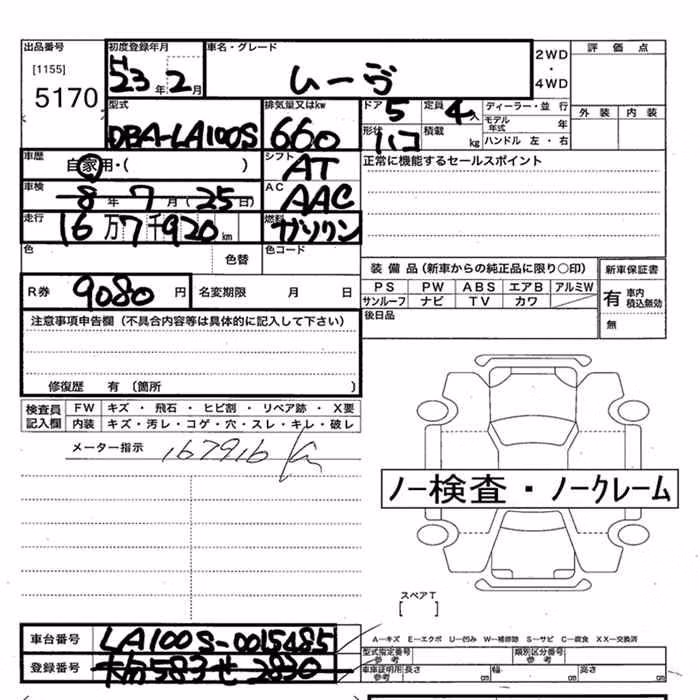 出品番号 初度登録年月 車名・グレード 2WD ・ 4WD 評価点
[1155] 5170 23年2月 ムーヴ 外装 内装
型式 排気量又はkw ドア 5 定員 4人 ディーラー・並行
DBA-LA100S 660 形状 ハコ 積載 kg モデル年式 年
ハンドル 左・右
車歴 自家用・( ) シフト AT 正常に機能するセールスポイント
車検 8年7月(25日) AC AAC
走行 16万7千920km 燃料 ガソリン
色 色替 色コード
装備品(新車からの純正品に限り〇印) 新車保証書
PS PW ABS エアB アルミW 有 車内積込無効
R券 9080円 名変期限 月 日 サンルーフ ナビ TV カワ
後日品 無
注意事項申告欄(不具合内容等は具体的に記入して下さい)
修復歴 有 〔箇所 〕
検査員記入欄 FW キズ・飛石・ヒビ割・リペア跡・X要
内装 キズ・汚レ・コゲ・穴・スレ・キレ・破レ
メーター指示 167916
ノー検査・ノークレーム
スペアT
[ ]
車台番号 LA100S-0015485 A-キズ E-エクボ U-凹み W-補修跡 S-サビ C-腐食 XX-交換済
型式指定番号 参考 類別区分番号 参考
登録番号 583せ2830 車車証明用参考 長さ cm 幅 cm 高さ cm